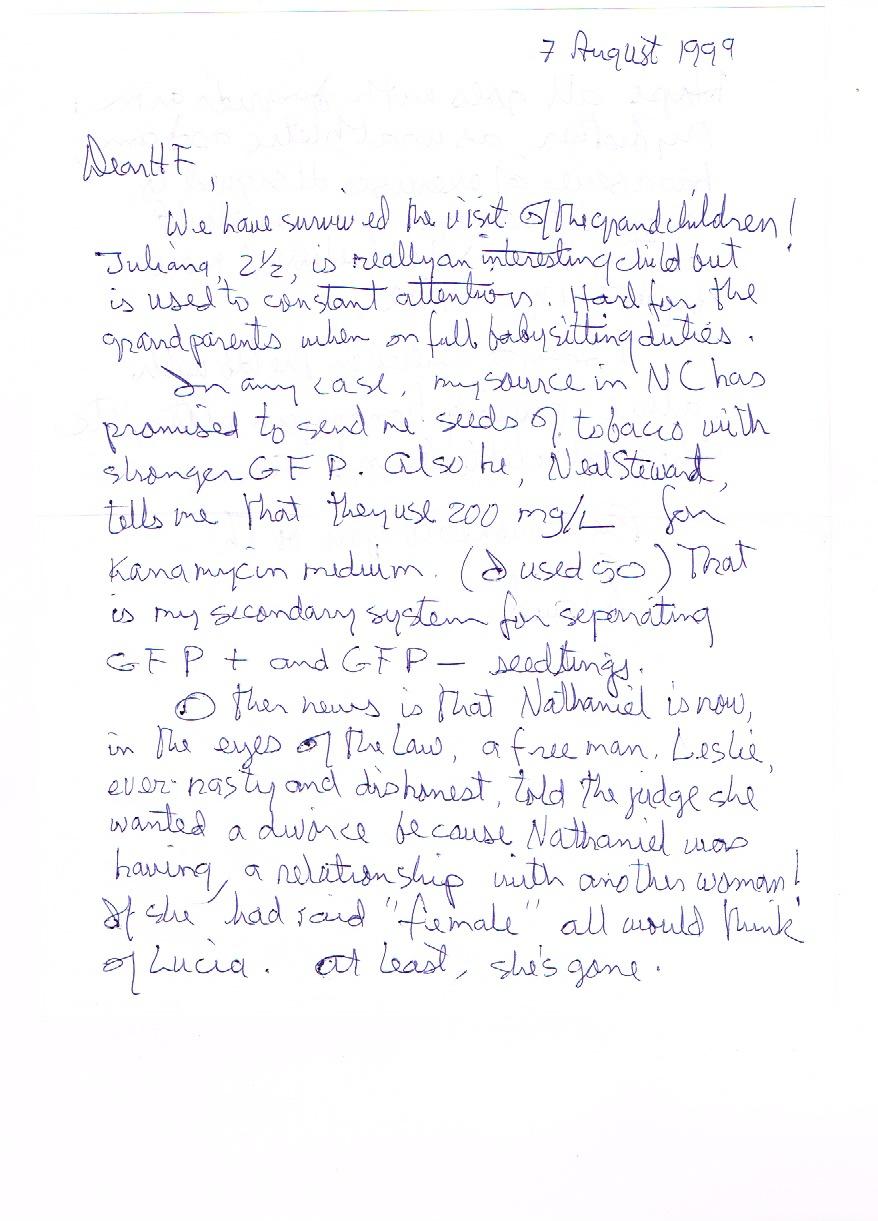 7 August 1999
Dear HF,
We have survived the visit of the grandchildren!
Juliana, 2½, is really an interesting child but
is used to constant attention. Hard for the
grandparents when on full babysitting duties.
In any case, my source in NC has
promised to send me seeds of tobacco with
stronger GFP. Also he, Neal Stewart,
tells me that they use 200 mg/L for
Kanamycin medium. (I used 50) That
is my secondary system for separating
GFP + and GFP – seedlings.
Other news is that Nathaniel is now,
in the eyes of the law, a free man. Leslie,
ever nasty and dishonest, told the judge she
wanted a divorce because Nathaniel was
having, a relationship with another woman!
If she had said "female" all would think
of Lucia. At least, she's gone.